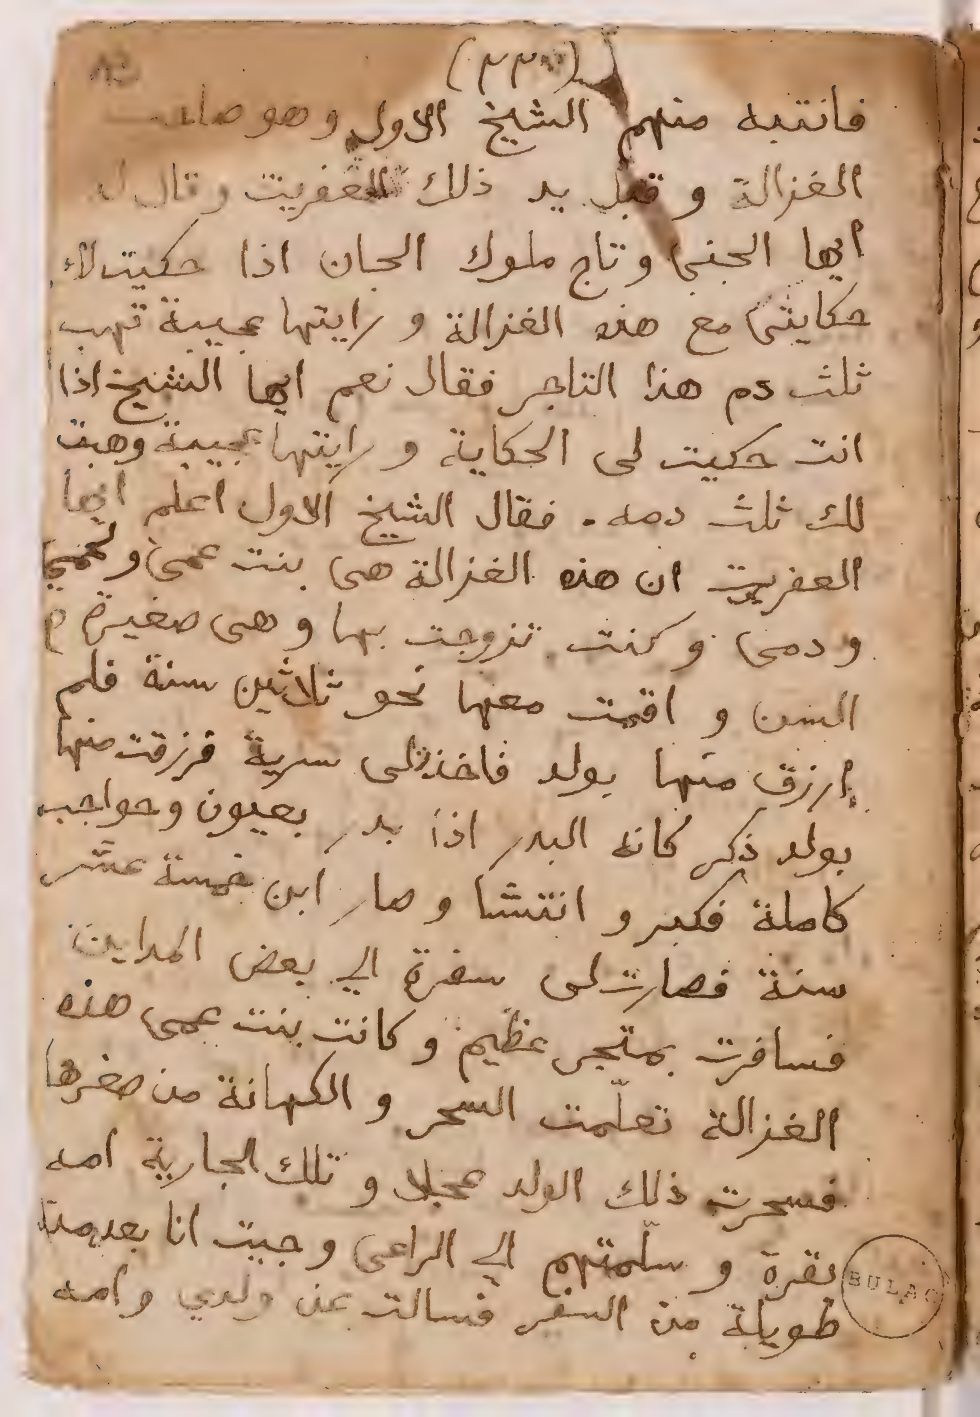 (٢٣)
فانتبه منهم الشيخ الاول وهو صاحب
الغزالة و قبل يد ذلك العفريت وقال له
ايها الجني وتاج ملوك الجان اذا حكيت لك
حكايتى مع هذه الغزالة و رايتها عجيبة تهب
ثلث دم هذا التاجر فقال نعم ايها الشيخ اذا
انت حكيت لى الحكاية و رايتها عجيبة وهبت
لك ثلث دمه . فقال الشيخ الاول اعلم ايها
العفريت ان هذه الغزالة هى بنت عمى و لحمي
و دمى و كنت تزوجت بها و هى صغيرة
السن و اقمت معها نحو ثلاثين سنة فلم
ارزق منها بولد فاخذت لى سرية فرزقت منها
بولد ذكر كانه البدر اذا بدر بعيون وحواجب
كاملة فكبر و انتشا و صار ابن خمسة عشر
سنة فصارت لى سفرة الي بعض المداين
فسافرت بمتجر عظيم و كانت بنت عمى هذه
الغزالة تعلّمت السحر و الكهانة من صغرها
فسحرت ذلك الولد عجلا و تلك الجارية امه
بقرة و سلّمتهم الي الراعى و جيت انا بعد مدة
طويلة من السفر فسالت عن ولدي و امه
BULAC